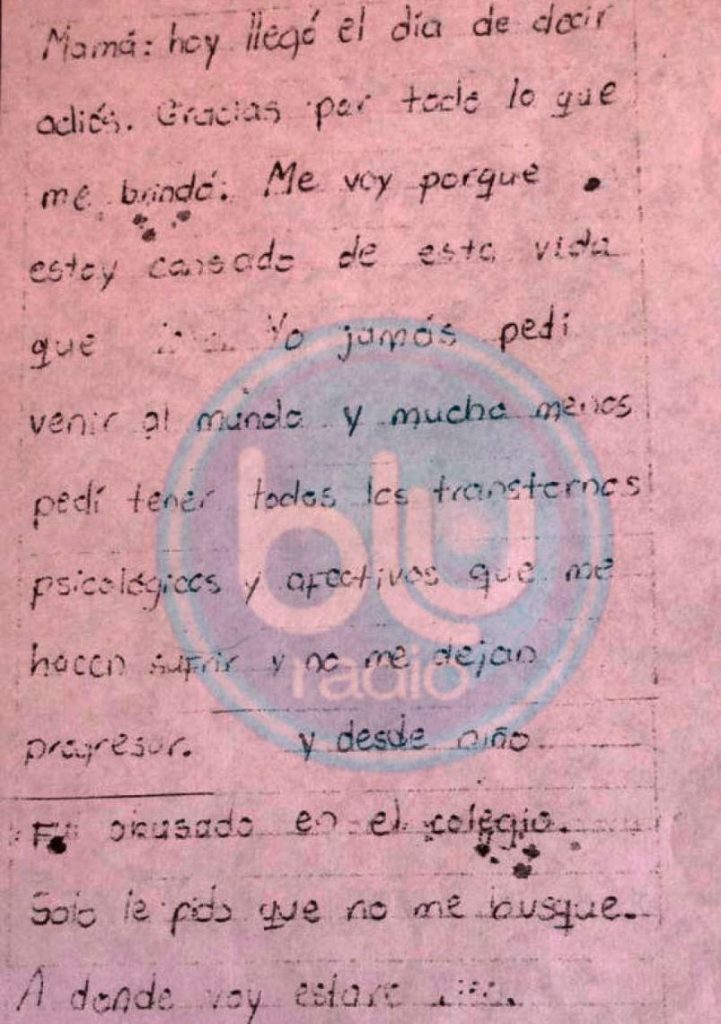 Mamá: hoy llegó el día de decir
adiós. Gracias por todo lo que
me brindó. Me voy porque
estoy cansado de esta vida
que Yo jamás pedí
venir al mundo y mucho menos
pedí tener todos los transtornos
psicológicos y afectivos que me
hacen sufrir y no me dejan
progresar. y desde niño
Fui abusado en el colegio.
Solo le pido que no me busque.
A donde voy estaré
blu
radio